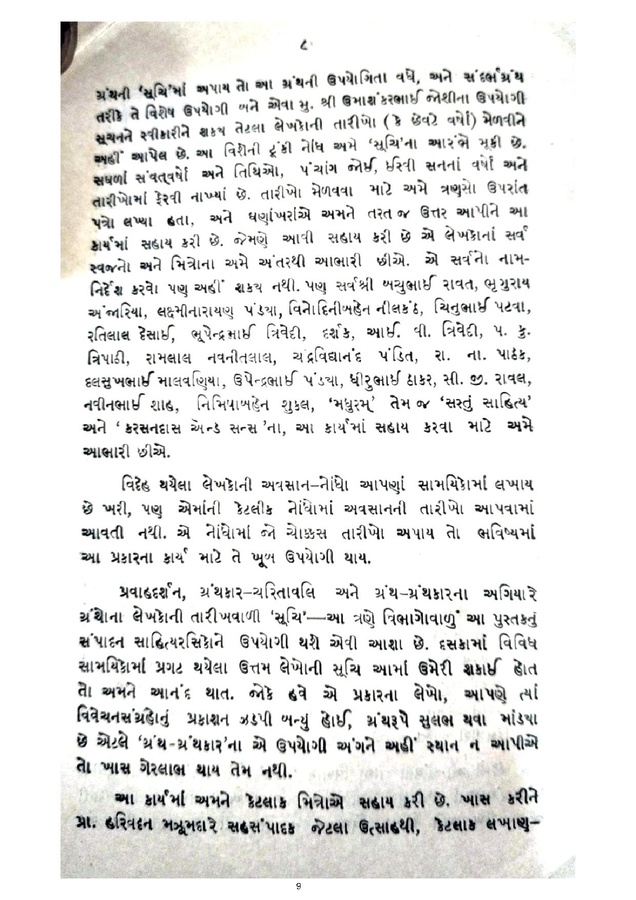 ૮
ગ્રંથની ‘સૂચિ’માં અપાય તો આ ગ્રંથની ઉપયોગિતા વધે, અને સંદર્ભગ્રંથ
તરીકે તે વિશેષ ઉપયોગી બને એવા મુ. શ્રી ઉમાશંકરભાઈ જોશીના ઉપયોગી
સૂચનને સ્વીકારીને શક્ય તેટલા લેખકોની તારીખો ( કે છેવટે વર્ષો ) મેળવીને
અહીં આપેલ છે. આ વિશેની ટૂંકી નોંધ અમે ‘સૂચિ’ના આરંભે મૂકી છે.
સઘળાં સંવત્‌વર્ષો અને તિથિઓ, પંચાંગ જોઈ, ઈસ્વી સનનાં વર્ષો અને
તારીખોમાં ફેરવી નાખ્યાં છે. તારીખો મેળવવા માટે અમે ત્રણસો ઉપરાંત
પત્રો લખ્યા હતા, અને ઘણાંખરાંએ અમને તરત જ ઉત્તર આપીને આ
કાર્યમાં સહાય કરી છે. જેમણે આવી સહાય કરી છે એ લેખકોનાં સર્વ
સ્વજનો અને મિત્રોના અમે અંતરથી આભારી છીએ. એ સર્વનો નામ-
નિર્દેશ કરવો પણ અહીં શક્ય નથી. પણ સર્વશ્રી બચુભાઈ રાવત, ભૃગુરાય
અંજારિયા, લક્ષ્મીનારાયણ પંડયા, વિનોદિનીબહેન નીલકંઠ, ચિનુભાઈ પટવા,
રતિલાલ દેસાઈ, ભૂપેન્દ્રભાઈ ત્રિવેદી, દર્શક, આઈ. વી. ત્રિવેદી, પ. કુ.
ત્રિપાઠી, રામલાલ નવનીતલાલ, ચંદ્રવિદ્યાનંદ પંડિત, રા. ના. પાઠક,
દલસુખભાઈ માલવણિયા, ઉપેન્દ્રભાઈ પંડયા, ધીરુભાઈ ઠાકર, સી. જી. રાવલ,
નવીનભાઈ શાહ, નિમિષાબહેન શુકલ, ‘મધુરમ્’ તેમ જ ‘સસ્તું સાહિત્ય’
અને ‘ કરસનદાસ ઍન્ડ સન્સ ’ના, આ કાર્યમાં સહાય કરવા માટે અમે
આભારી છીએ.
વિદેહ થયેલા લેખકોની અવસાન–નોંધો આપણાં સામયિકોમાં લખાય
છે ખરી, પણ એમાંની કેટલીક નોંધોમાં અવસાનની તારીખો આપવામાં
આવતી નથી. એ નોંધોમાં જો ચોક્કસ તારીખો અપાય તો ભવિષ્યમાં
આ પ્રકારના કાર્ય માટે તે ખૂબ ઉપયોગી થાય.
પ્રવાહદર્શન, ગ્રંથકાર–ચરિતાવલિ અને ગ્રંથ–ગ્રંથકારના અગિયારે
ગ્રંથોના લેખકોની તારીખવાળી ‘સૂચિ’—આ ત્રણે વિભાગોવાળું આ પુસ્તકનું
સંપાદન સાહિત્યરસિકોને ઉપયોગી થશે એવી આશા છે. દસકામાં વિવિધ
સામયિકોમાં પ્રગટ થયેલા ઉત્તમ લેખોની સૂચિ આમાં ઉમેરી શકાઈ હોત
તો અમને આનંદ થાત. જોકે હવે એ પ્રકારના લેખો, આપણે ત્યાં
વિવેચનસંગ્રહોનું પ્રકાશન ઝડપી બન્યું હોઈ, ગ્રંથરૂપે સુલભ થવા માંડ્યા
છે એટલે ‘ગ્રંથ–ગ્રંથકાર’ના એ ઉપયોગી અંગને અહીં સ્થાન ન આપીએ
તો ખાસ ગેરલાભ થાય તેમ નથી.
આ કાર્યમાં અમને કેટલાક મિત્રોએ સહાય કરી છે. ખાસ કરીને
પ્રા. હરિવદન મઝૂમદારે સહસંપાદક જેટલા ઉત્સાહથી, કેટલાક લખાણ–
9